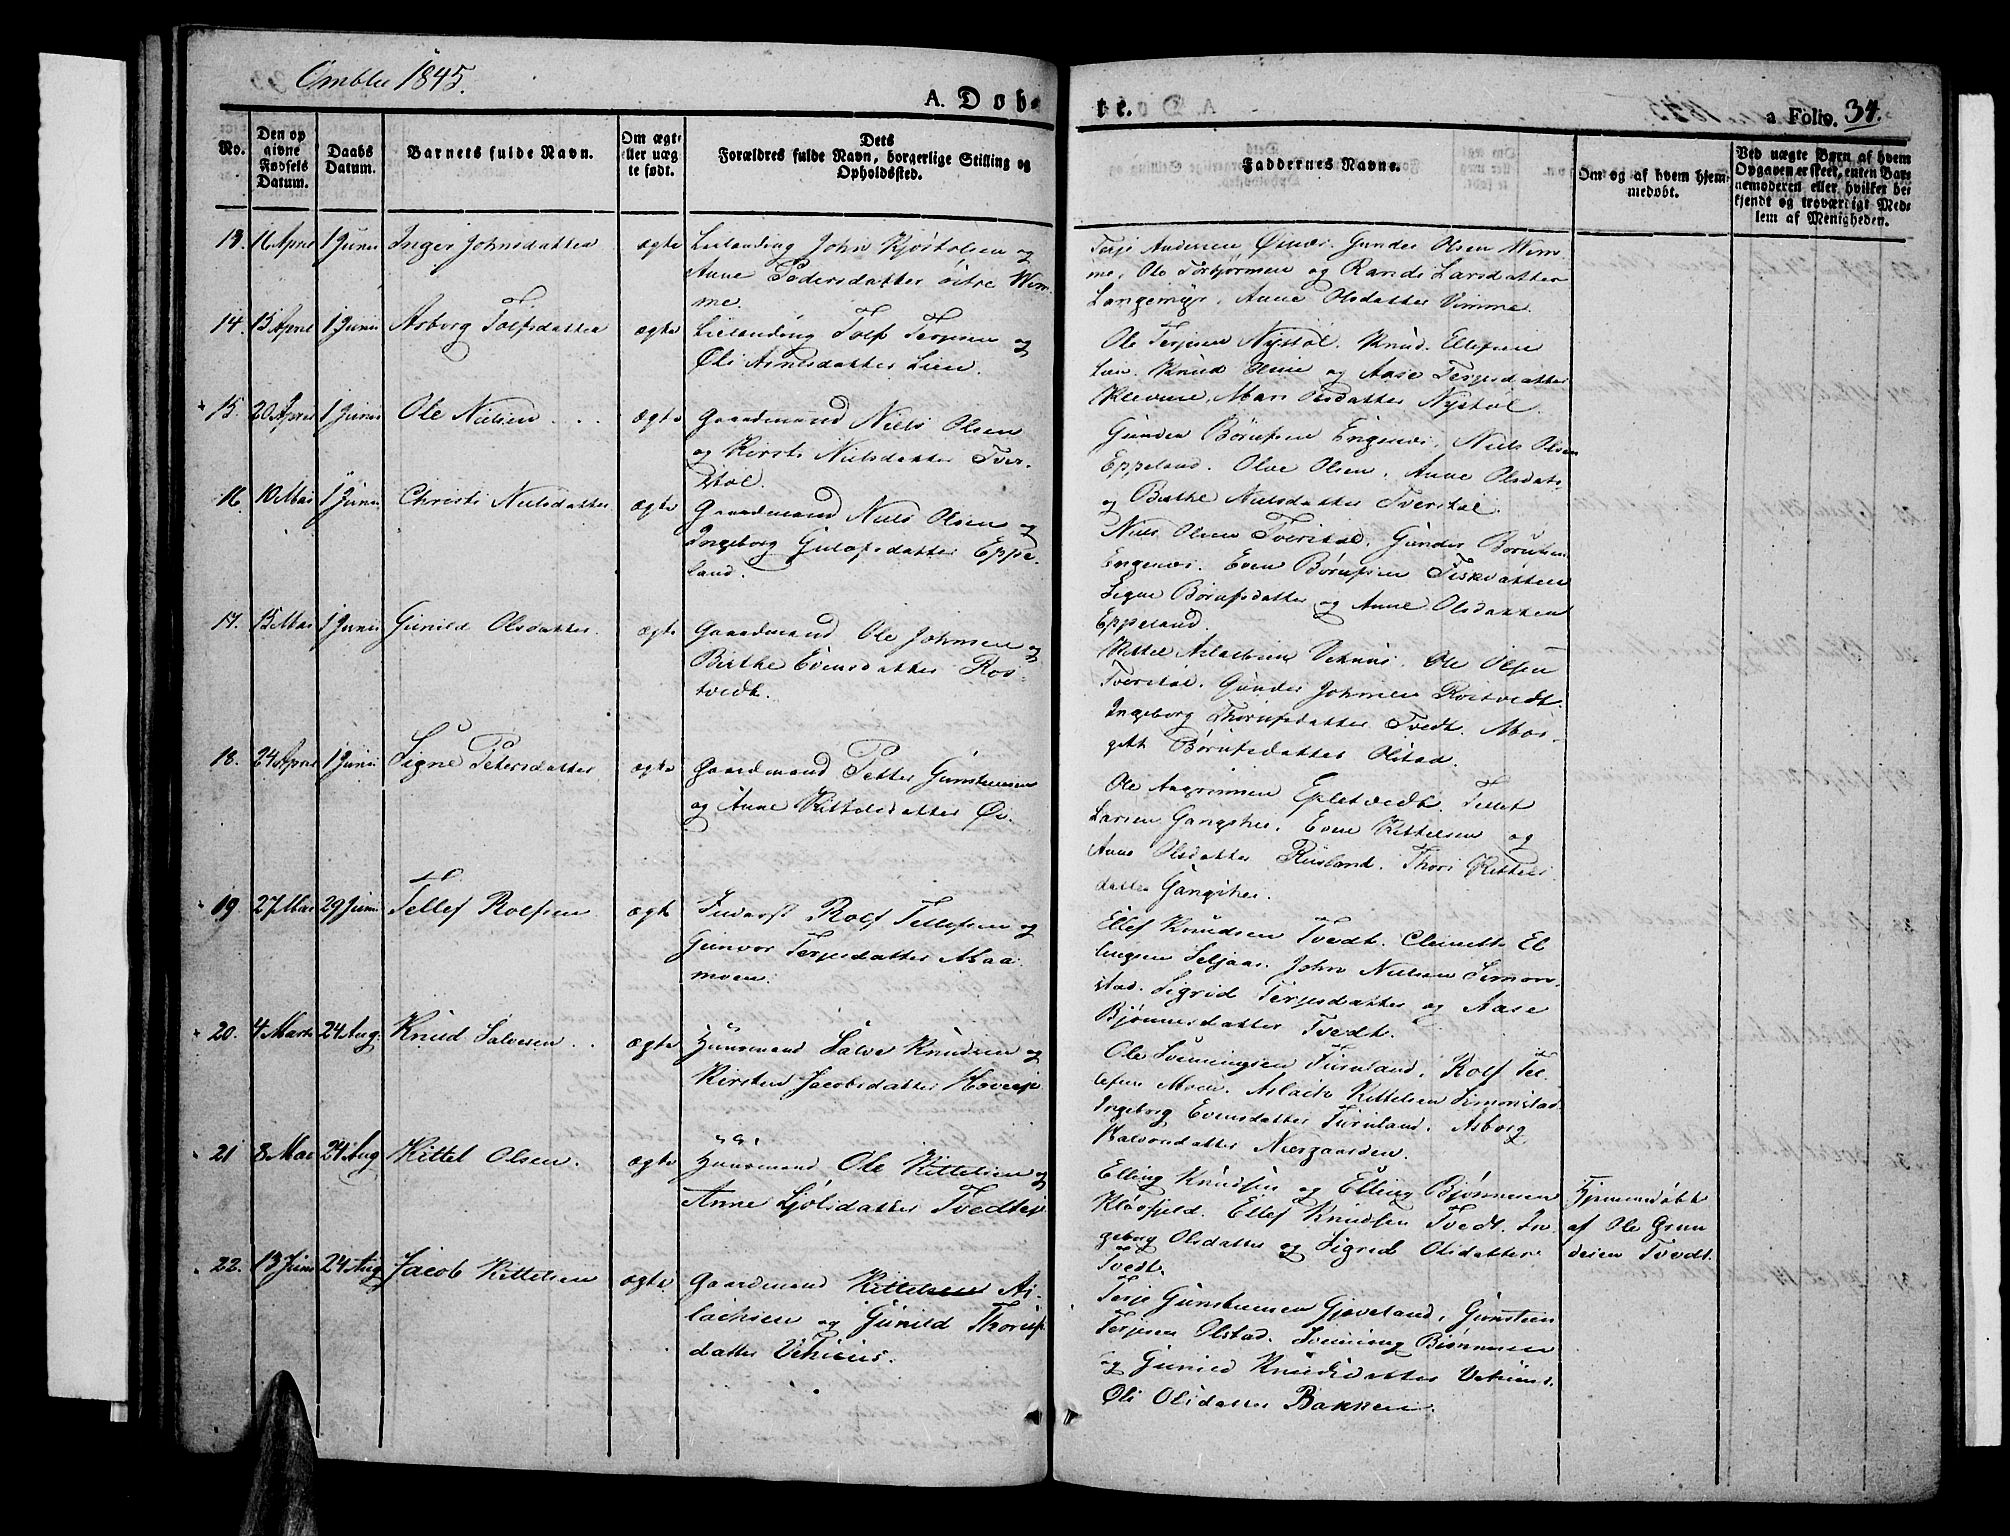 Omblie 1845.
A. Døb-
te.
a Folio. 34.
No.
Den op
givne
Fødsels
Datum.
Daabs
Datum.
Barnets fulde Navn.
Om ægte
eller uæg
te født.
Dets
Forældres fulde Navn, borgerlige Stilling og
Opholdssted.
Faddernes Navne.
Om og af hvem hjem
medøbt.
Ved uægte Børn af hvem
Opgaven er skeet, enten Bar
nemoderen eller, hvilket be
kjendt og troværdigt Med-
lem af Menigheden.
13. 16 April 1 Juni Inger Johnsdatter ægte Leilænding John Kjøstolsen og
Anne Pedersdatter østre Wim-
me.
Terje Andersen Øinæs. Gunder Olsen Wim-
me, Ole Torbjørnsen og Randi Larsdatter
Langemyr, Anne Olsdatter Vimme.
14. 15 April 1 Juni Asborg Tolfsdatter ægte Leilænding Tolf Terjesen og
Øli Asnesdatter Lien.
Ole Terjesen Nystøl. Knud Ellefsen
Lien. Knud Olsen og Aase Terjesdatter
Klevene, Mari Olsdatter Nystøl.
15. 20 April 1 Juni Ole Nielsen ægte Gaardmand Niels Olsen
og Kirsti Nielsdatter Tver-
støl.
Gunder Børufsen Engenæs, Niels Olsen
Eppeland. Olve Olsen. Anne Olsdatr
og Birthe Nielsdatter Tverstøl.
16. 10 Mai 1 Juni Christi Nielsdatter ægte Gaardmand Niels Olsen og
Ingeborg Gulofsdatter Eppe-
land.
Niels Olsen Tverstøl, Gunder Børufsen
Engenæs. Even Børufsen Fiskvatten
Signe Børufsdatter og Anne Olsdatter
Eppeland.
17. 15 Mai 1 Juni Gunild Olsdatter. ægte Gaardmand Ole Johnsen og
Birthe Evensdatter Ros-
tvedt.
Kittel Aslaksen Vehuus. Ole Olsen
Tverstøl. Gunder Johnsen Rostvedt.
Ingeborg Thorufsdatter Tvedt. Mar-
gett Børufsdatter Olstad.
18. 24 April 1 Juni Signe Petersdatter ægte Gaardmand Petter Gunstensen
og Anne Kittelsdatter Øi.
Ole Angrimsen Epletvedt. Tellef
Larsen Gangshei. Even Kittelsen og
Anne Olsdatter Rusland. Thore Kittels
datter Gangshei.
19 27 Mai 29 Juni Tellef Rolfsen ægte Inderst Rolf Tellefsen og
Gunvor Terjesdatter Maa-
moen.
Ellef Knudsen Tvedt. Clemett El
lingsen Seljaas. John Nielsen Simon-
stad. Sigrid Terjesdatter og Aase
Bjønnesdatter Tvedt.
20. 4 Marts 24 Aug. Knud Salvesen ægte Huusmand Salve Knudsen og
Kirsten Jacobsdatter Hoveei
Ole Svenningsen Furuland. Rolf Tel-
lefsen Moen. Aslach Kittelsen Simonstad.
Ingeborg Evensdatter Furuland. Asborg
Halvorsdatter Næsgaarden.
21 8 Mai 24 Aug Kittel Olsen. ægte Huusmand Ole Kittelsen og
Anne Ljølsdatter Tvedtei
Elling Knudsen og Elling Bjønnesen
Kløvfjeld. Ellef Knudsen Tvedt. In
geborg Olsdatter og Sigrid Olsdatter
Tvedt.
Hjemmedøbt
af Ole Grun
desen Tvedt.
22. 13 Juni 24 Aug Jacob Kittelsen ægte Gaardmand Kittelsen As-
lachsen og Gunild Thoruf
datter Vehuus.
Terje Gunstensen Gjøveland, Gunsten
Terjesen Olstad. Svenning Bjønnesen
og Gunild Knudsdatter Vehuus.
Øli Olsdatter Bakken.